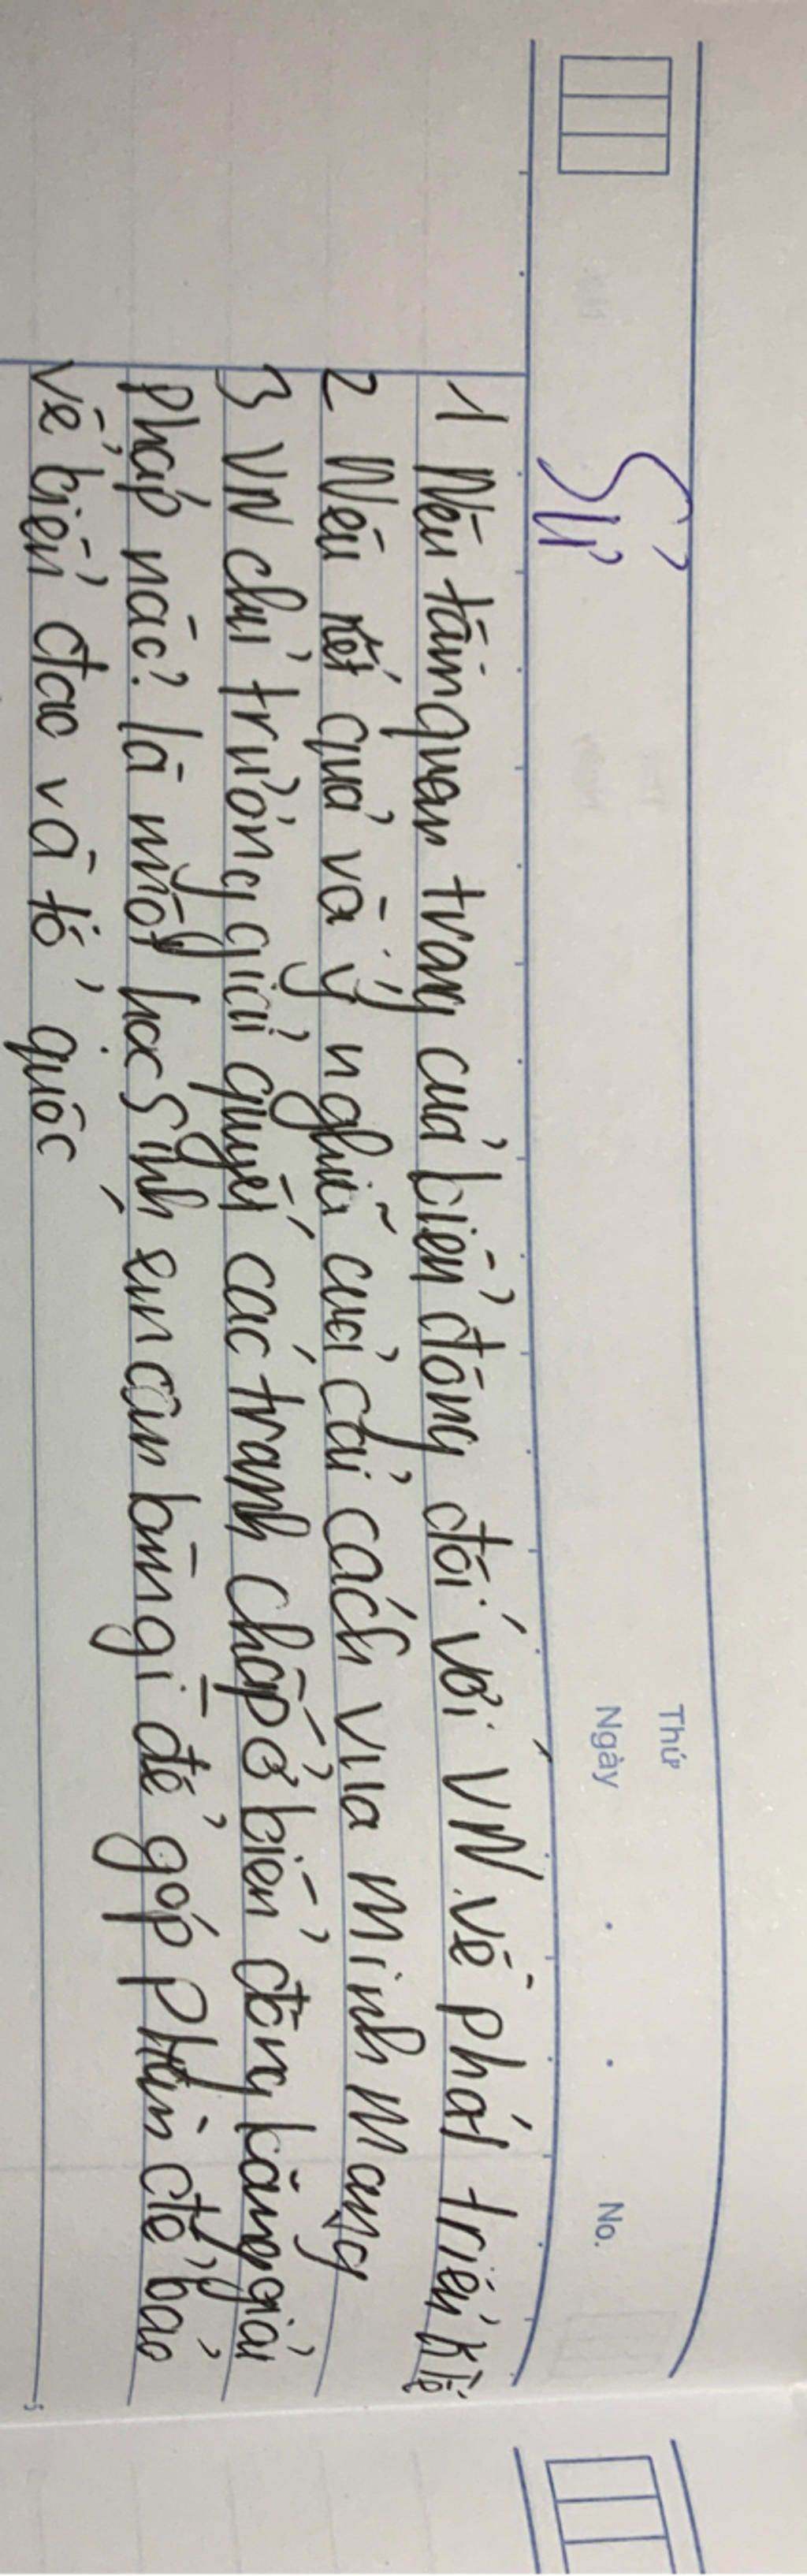 Thứ
Ngày
No.
Sử
1 Nêu tầm quan trọng của biển đông đối với VN về phát triển KTế
2 Nêu kết quả và ý nghĩa của cải cách vua minh mạng
3 VN chủ trương giải quyết các tranh chấp ở biển đông bằng giải
pháp nào? là một học sinh em cần làm gì để góp phần để bảo
vệ biển đảo và tổ quốc